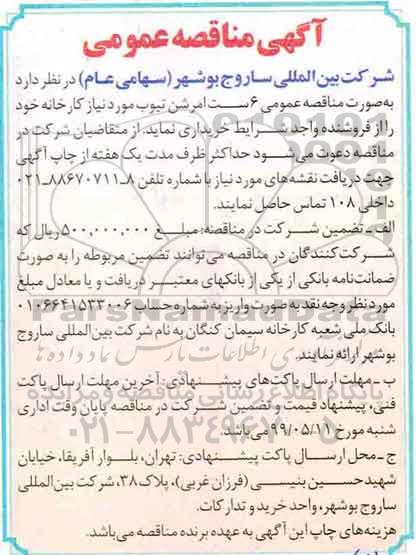 آگهی مناقصه عمومی
شرکت بین‌المللی ساروج بوشهر (سهامی عام) در نظر دارد
به‌صورت مناقصه عمومی ۶ ست امرشن تیوب مورد نیاز کارخانه خود
را از فروشنده واجد شرایط خریداری نماید. از متقاضیان شرکت در
مناقصه دعوت می‌شود حداکثر ظرف مدت یک هفته از چاپ آگهی
جهت دریافت نقشه‌های مورد نیاز با شماره تلفن ۸-۸۸۶۷۰۷۱۱-۰۲۱
داخلی ۱۰۸ تماس حاصل نمایند.
الف-تضمین شرکت در مناقصه: مبلغ ۵۰۰,۰۰۰,۰۰۰ ریال که
شرکت‌کنندگان در مناقصه می‌توانند تضمین مربوطه را به صورت
ضمانت‌نامه بانکی از یکی از بانکهای معتبر دریافت و یا معادل مبلغ
مورد نظر وجه نقد به صورت واریز به شماره حساب ۰۱۰۶۶۴۱۵۳۳۰۰۶
بانک ملی شعبه کارخانه سیمان کنگان به نام شرکت بین‌المللی ساروج
بوشهر ارائه نمایند.
ب-مهلت ارسال پاکت‌های پیشنهادی: آخرین مهلت ارسال پاکت
فنی، پیشنهاد قیمت و تضمین شرکت در مناقصه پایان وقت اداری
شنبه مورخ ۹۹/۰۵/۱۱ می‌باشد.
ج-محل ارسال پاکت پیشنهادی: تهران، بلوار آفریقا، خیابان
شهید حسین بنیسی (فرزان غربی)، پلاک ۳۸، شرکت بین‌المللی
ساروج بوشهر، واحد خرید و تدارکات.
هزینه‌های چاپ این آگهی به عهده برنده مناقصه می‌باشد.